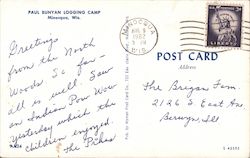 PAUL BUNYAN LOGGING CAMP
Minocqua, Wis.
Greetings
from the North
Woods. So far
all is well. Saw
an Indian Pow Wow
yesterday which the
children enjoyed.
The
MINOCQUA
1962
WIS.
POST CARD
Address
The Brejan Fam.
2126 S. East Ave
Berwyn, Ill